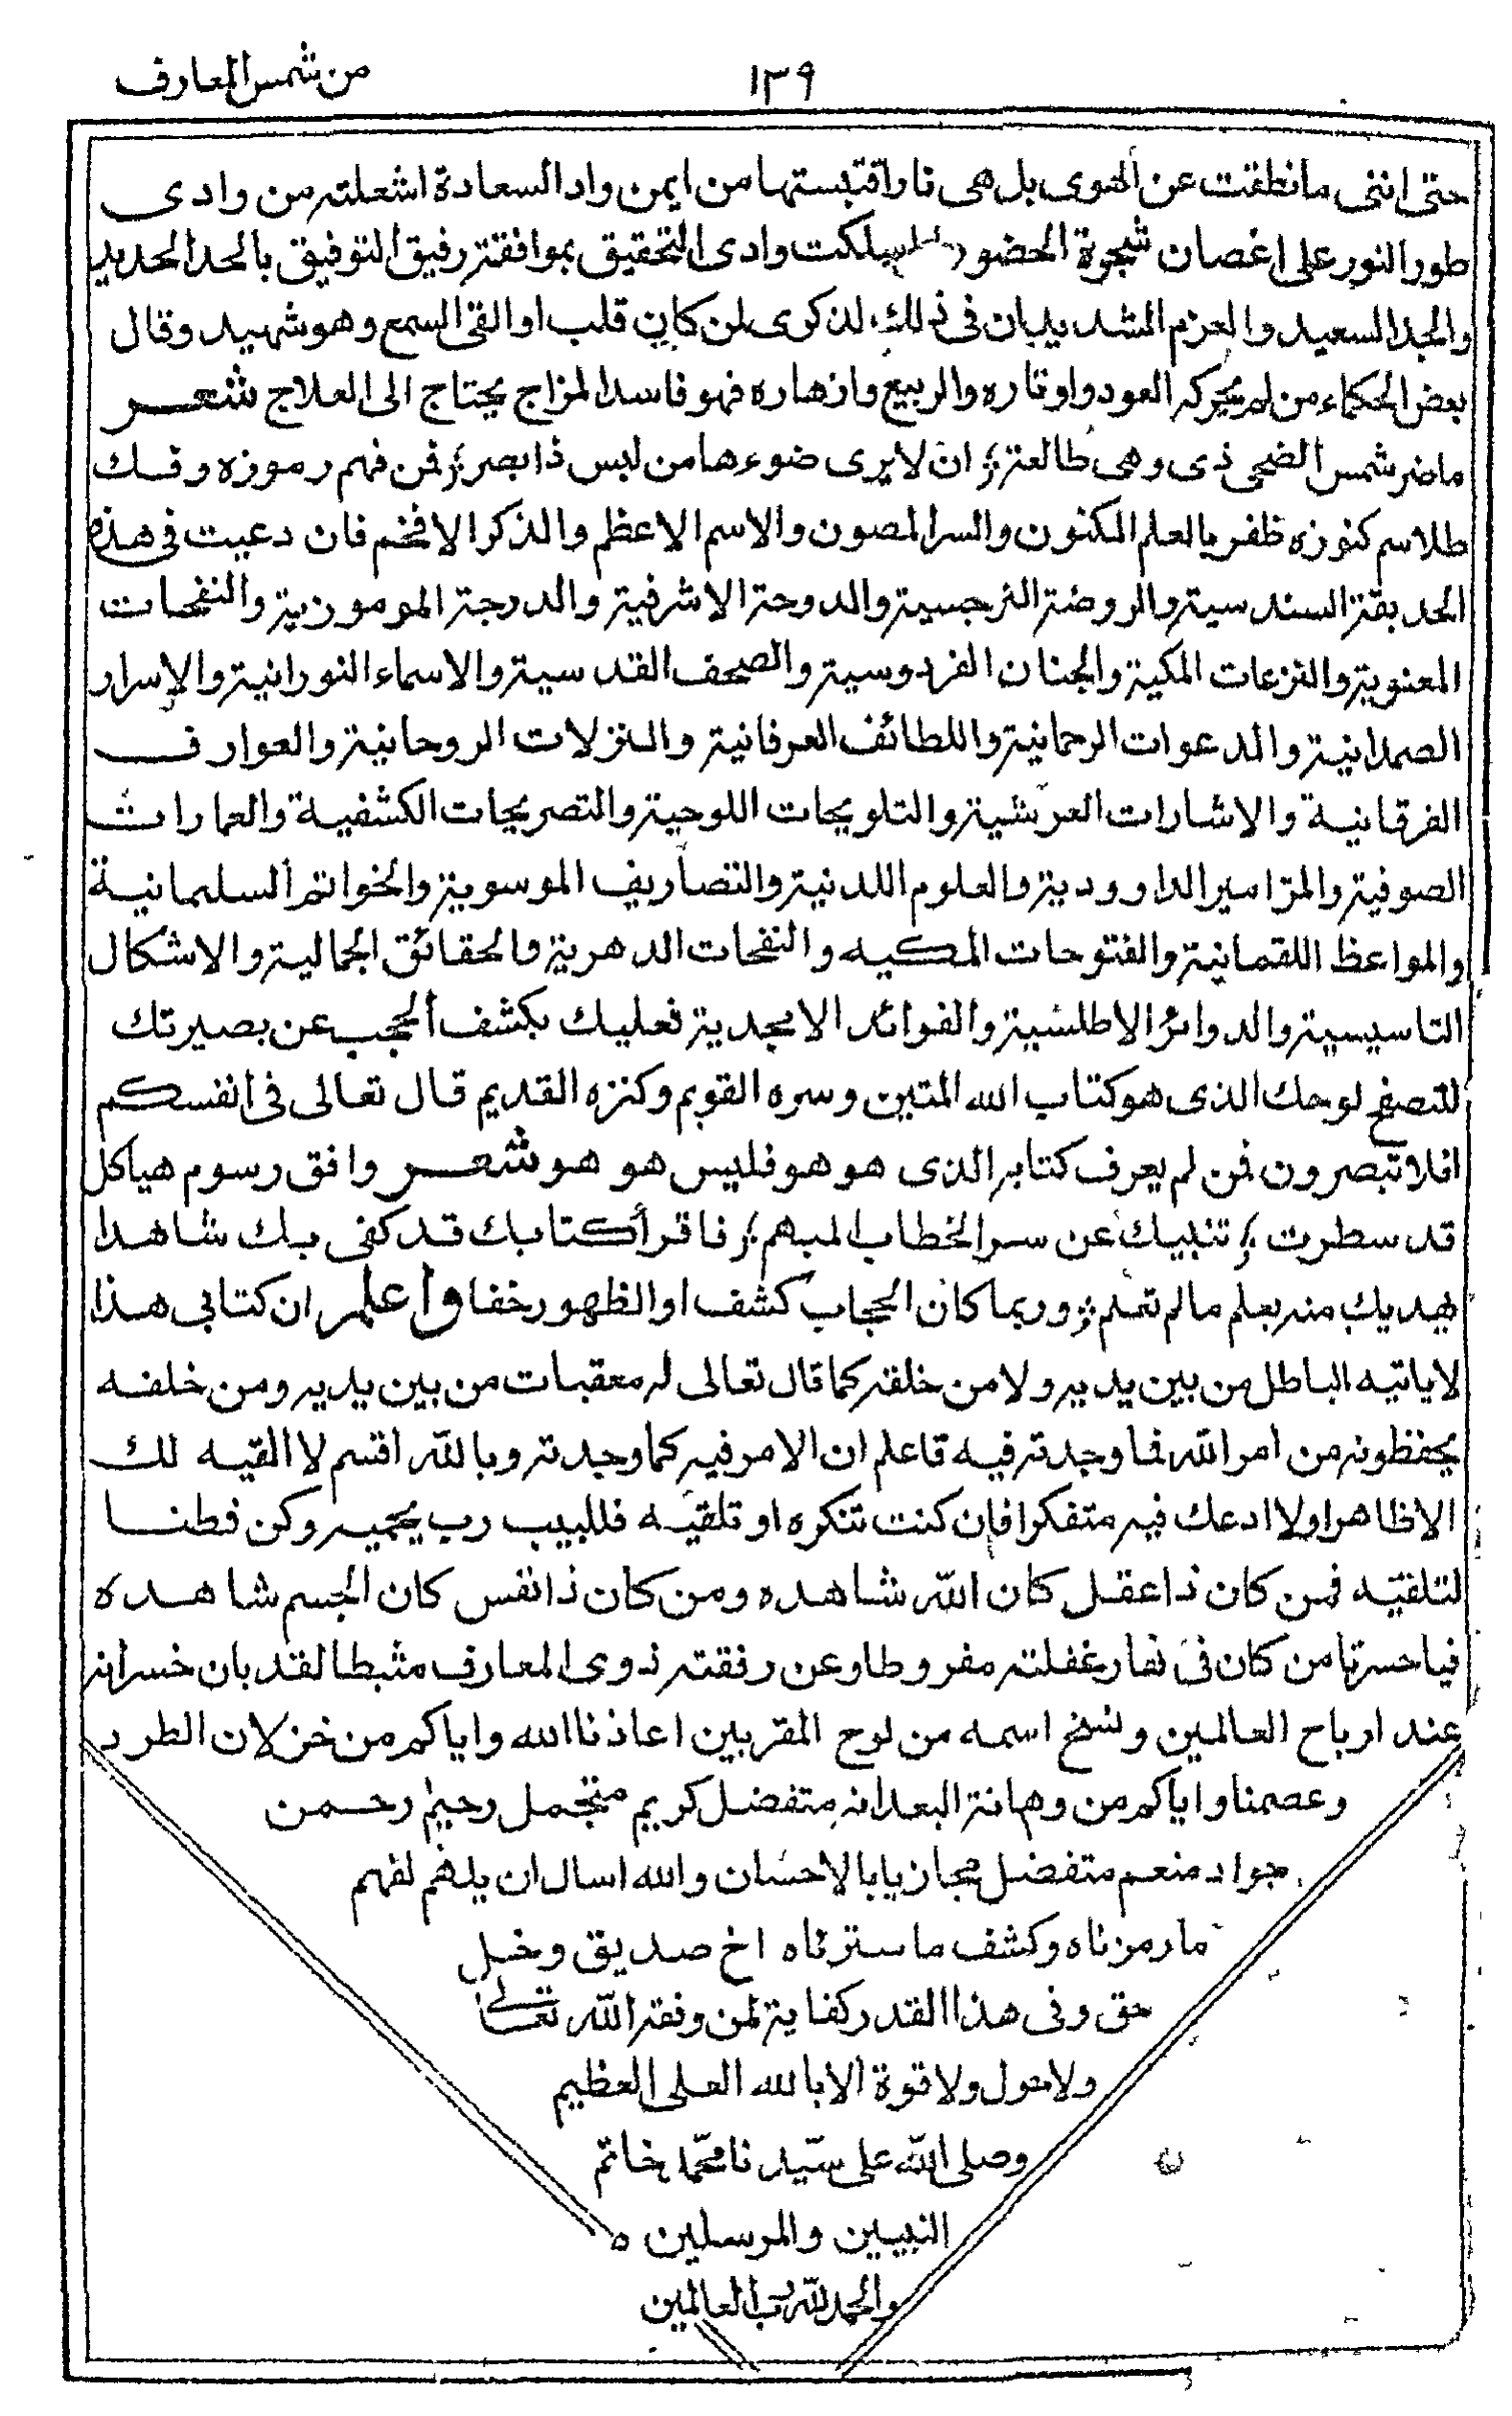 من شمس المعارف
١٣٩
حتى اننى ما نطقت عن الهوى بل هى نار اقتبستها من ايمن واد السعادة اشعلته من وادى
طور النور على اغصان شجرة الحضور سلكت وادى التحقيق بموافقة رفيق التوفيق بالحد الحديد
والجد السعيد والعزم الشديد بان فى ذلك لذكرى لمن كان قلب او القى السمع وهو شهيد وقال
بعض الحكماء من لم يحركه العود واوتاره والربيع وازهاره فهو فاسد المزاج يحتاج الى العلاج شعر
ما ضر شمس الضحى ذى وهى طالعة ؛ ان لا يرى ضوءها من ليس ذا بصر ؛ فمن فهم رموزه وفك
طلاسم كنوزه ظفر بالعلم المكنون والسر المصون والاسم الاعظم والذكر الافخم فان دعيت فى هذه
الحديقة السندسية والروضة النرجسية والدوحة الاشرفية والدرجة الموموزية والنفحات
المعنوية والنزعات المكية والجنان الفردوسية والصحف القدسية والاسماء النورانية والاسرار
الصمدانية والدعوات الرحمانية واللطائف العرفانية والنزلات الروحانية والعوارف
الفرقانية والاشارات العرشية والتلويحات اللوحية والتصريحات الكشفية والعمارات
الصوفية والمزامير الداوودية والعلوم اللدنية والتصاريف الموسوية والخواتم السليمانية
والمواعظ اللقمانية والفتوحات المكيه والنفحات الدهرية والحقائق الجمالية والاشكال
التاسيسية والدوائر الاطلسية والفوائد الابجدية فعليك بكشف الحجب عن بصيرتك
لتصفح لوحك الذى هو كتاب الله المتين وسره القويم وكنزه القديم قال تعالى فى انفسكم
افلا تبصرون فمن لم يعرف كتابه الذى هو هو فليس هو هو شعر وافق رسوم هياكل
قد سطرت ؛ تنبيك عن سر الخطاب المبهم ؛ فاقرأ كتابك قد كفى بك شاهدا
يهديك منه بعلم ما لم تعلم ؛ وربما كان الحجاب كشف او الظهور خفا واعلم ان كتابى هذا
لا ياتيه الباطل من بين يديه ولا من خلفه كما قال تعالى له معقبات من بين يديه ومن خلفه
يحفظونه من امر الله فما وجدته فيه فاعلم ان الامر فيه كما وجدته وبالله اقسم لا القيه لك
الا ظاهرا ولا ادعك فيه متفكرا فان كنت تنكره او تلقيه فللبيب رب يحميه وكن فطنا
لتلقيه فمن كان ذا عقل كان الله شاهده ومن كان ذا نفس كان الجسم شاهده
فيا حسرتا من كان فى نهار غفلته مفروطا وعن رفقته ذوى المعارف مثبطا لقد بان خسرانه
عند ارباح العالمين ونسخ اسمه من لوح المقربين اعاذنا الله واياكم من خزلان الطرد
وعصمنا واياكم من وهانة البعد انه متفضل كريم متجمل رحيم رحمن
جواد منعم متفضل مجازيا بالاحسان والله اسال ان يلهم لفهم
ما رمزناه وكشف ما سترناه اخ صديق وخل
حق وفى هذا القدر كفاية لمن وفقه الله تعالى
ولا حول ولا قوة الا بالله العلى العظيم
وصلى الله على سيدنا محمد خاتم
النبيين والمرسلين ه
والحمد لله رب العالمين